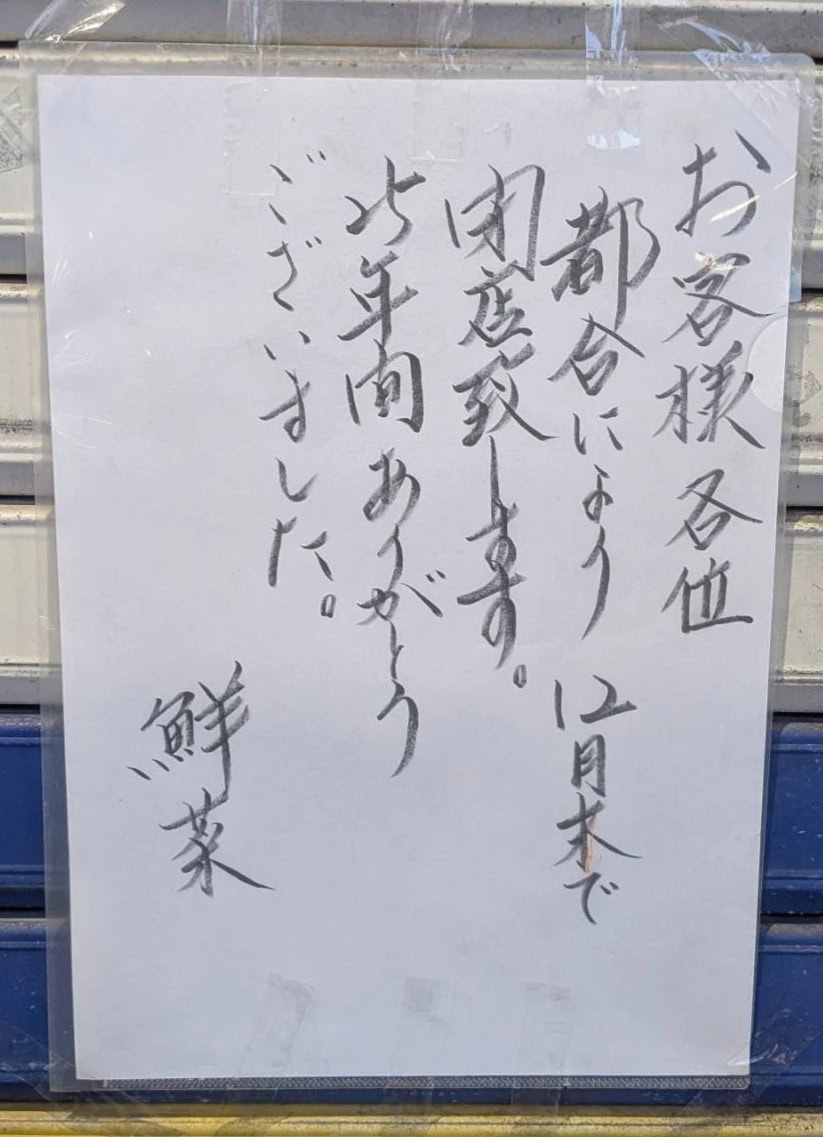 お客様各位
都合により 12月末で
閉店致します。
25年間ありがとう
ございました。
鮮菜